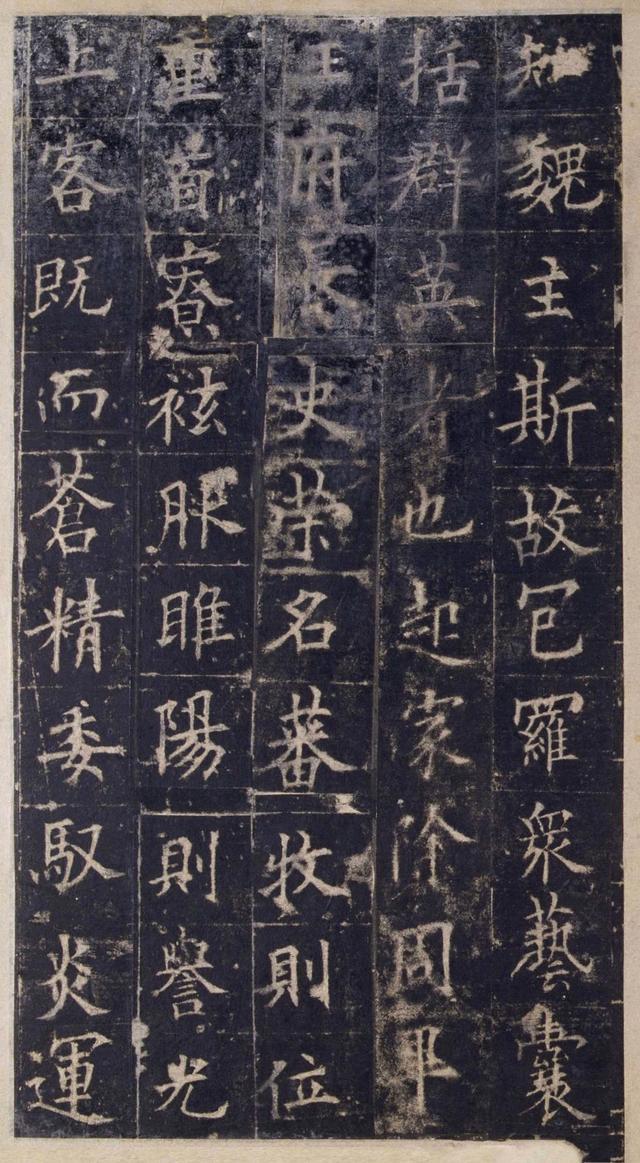 知魏主斯故包羅衆藝囊
括群英者也起家除周邸
王府長史榮名蕃牧則位
重首寮袨服睢陽則譽光
上客既而蒼精委馭炎運